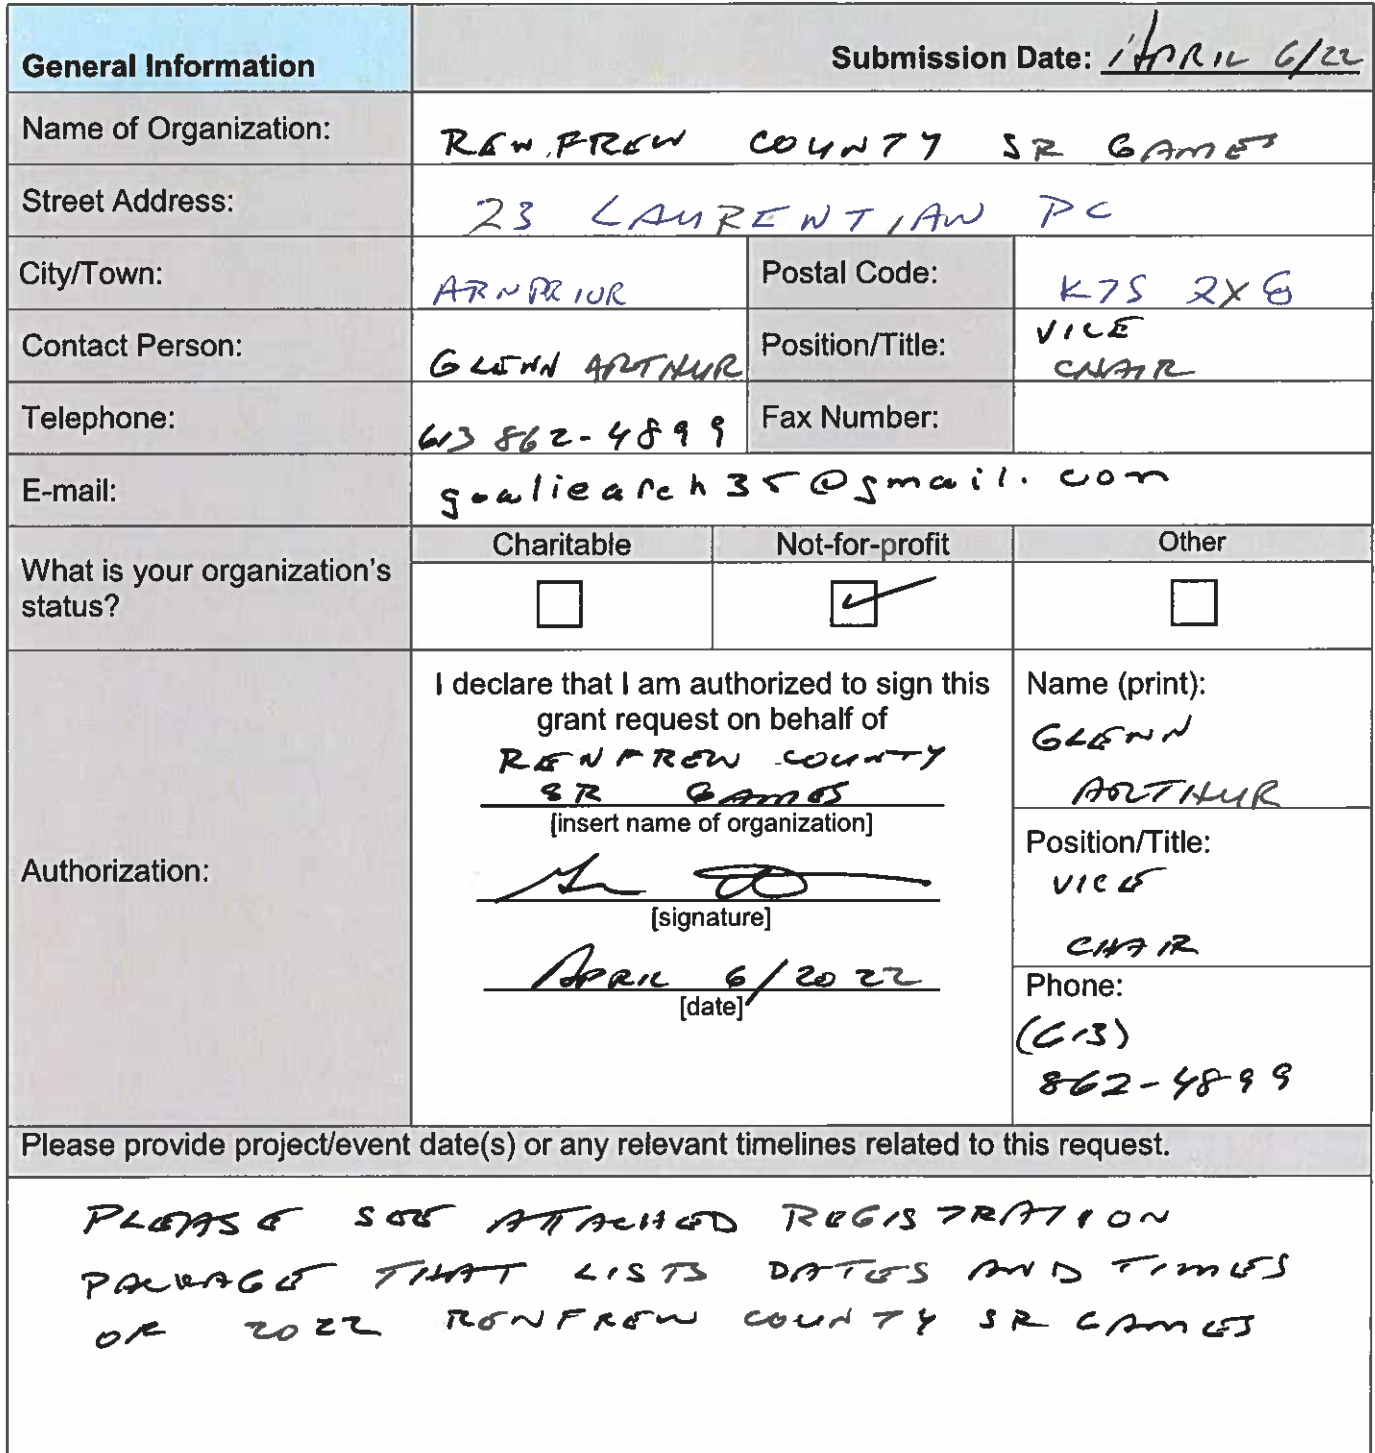 General Information
Submission Date: APRIL 6/22
Name of Organization: RENFREW COUNTY SR GAMES
Street Address: 23 LAURENTIAN PC
City/Town: ARNPRIOR Postal Code: K7S 2X8
Contact Person: GLENN ARTHUR Position/Title: VICE CHAIR
Telephone: 613 862-4899 Fax Number:
E-mail: goaliearch35@gmail.com
What is your organization's status?
Charitable Not-for-profit Other
Authorization:
I declare that I am authorized to sign this
grant request on behalf of
RENFREW COUNTY
SR GAMES
[insert name of organization]
[signature]
APRIL 6/2022
[date]
Name (print):
GLENN
ARTHUR
Position/Title:
VICE
CHAIR
Phone:
(613)
862-4899
Please provide project/event date(s) or any relevant timelines related to this request.
PLEASE SEE ATTACHED REGISTRATION
PACKAGE THAT LISTS DATES AND TIMES
OF 2022 RENFREW COUNTY SR GAMES